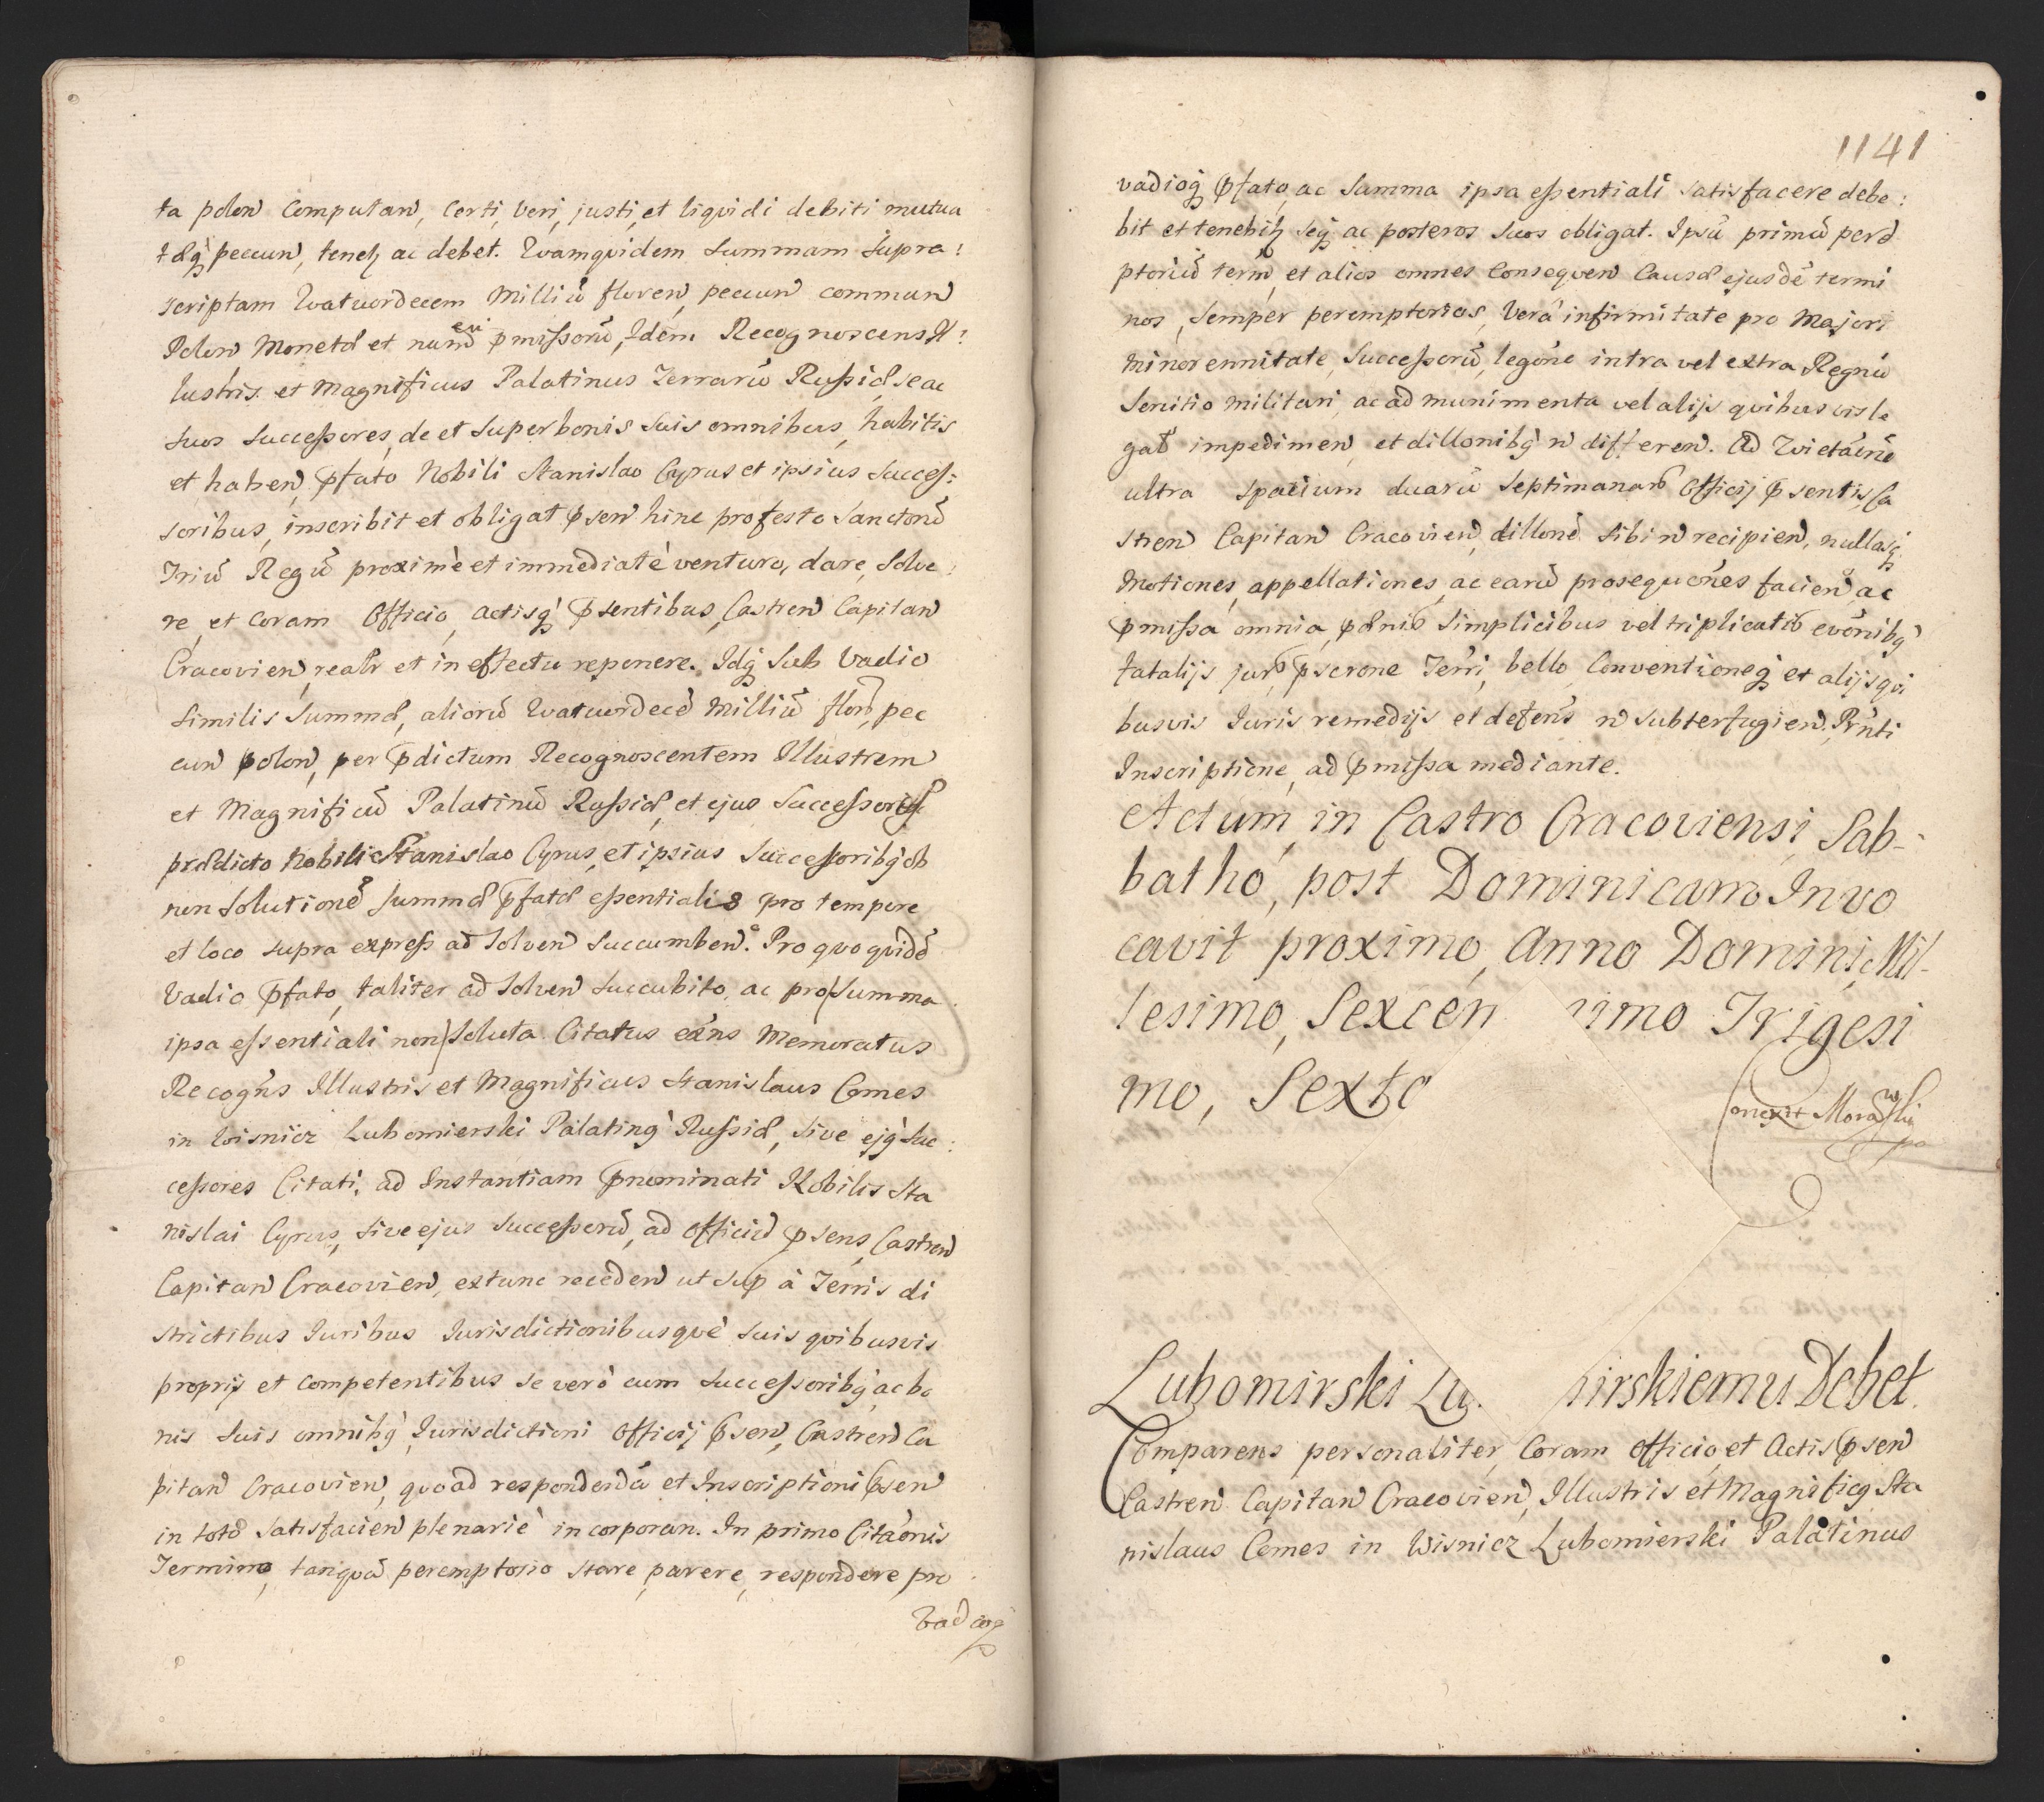 ta polon Computan, Certi, Veri, justi, et liqvidi debiti mutua
tæq̃ pecun, tenetz ac debet. Qvamqvidem Summam Supra:
scriptam Qvatuordecem Milliũ floren, pecun commun
Polon Monetæ et numeri p̃missorũ, Idem Recognoscens Il:
lustris et Magnificus Palatinus Terrarũ Russiæ, se ac
suos Successores, de et super bonis suis omnibus, habitis
et haben, p̃fato Nobili Stanislao Cyrus et ipsius Succes:
soribus, inscribit et obligat p̃sen hinc pro festo Sanctorũ
Triũ Regũ proximè et immediatè venturo, dare, Solve:
re, et Coram Officio, actisq̃ p̃sentibus, Castren Capitan
Cracovien, realr et in effectu reponere. Idq̃ Sub Vadio
similis Summæ, aliorũ Qvatuordecẽ Milliũ floñ, pec
cun polon, per p̃dictum Recognoscentem Illustrem
et Magnificũ Palatinũ Russiæ, et ejus Successores
prædicto Nobili Stanislao Cyrus, et ipsius Successoribq̃ ob
non Solutionẽ Summæ p̃fatæ essentialis pro tempore
et loco supra express ad Solven Succumben. Pro qvo qvidẽ
Vadio p̃fato, taliter ad Solven Succubito, ac pro Summa
ipsa essentiali non Soluta Citatus exñs Memoratus
Recogñs Illustris et Magnificus Stanislaus Comes
in Wisnicz Lubomierski Palatinq̃ Russiæ, Sive ejq̃ Suc:
cessores Citati, ad Instantiam p̃nominati Nobilis Sta
nislai Cyrus, Sive ejus Successorũ, ad officiũ p̃sens, Castren
Capitan Cracovien, extunc receden ut Sup à Terris di
strictibus Iuribus Iurisdictionibusqvè suis qvibusvis
proprijs et Competentibus se verò cum Successoribq̃ ac bo
nis suis omnibq̃, Iurisdictioni Officij p̃sen, Castren Ca
pitan Cracovien, qvoad respondendũ et Inscriptioni p̃sen
in toto Satisfacien plenariè incorporan. In primo Citãonis
Termino, tanqvã peremptorio stare, parere, respondere, pro
Vadioq̃
1141
vadioq̃ p̃fato, ac Summa ipsa essentiali satisfacere debe:
bit et tenebitz seq̃ ac posteros suos obligat. Ipsũ primũ perẽ
ptoriũ term, et alios omnes Conseqven Causæ ejusdẽ termi
nos, Semper peremptorios, Verã infirmitate pro Majori
Minorennitate, Successorũ, legõne intra vel extra Regnũ
Servitio Militari, ac ad munimenta vel alijs qvibusvis le
gał impedimen, et dillonibq̃ ñ differen. Ad Qvietãnẽ
ultra spatium duarũ Septimanarũ Officij p̃sentis, Ca
stren Capitan Cracovien, dillonẽ sibi ñ recipien, nullasq̃
Motiones, appellationes, ac earũ proseqvões facien, ac
p̃missa omnia, pænis Simplicibus vel triplicatis evõnibq̃
fatalijs juris, p̃scrone Terri, bello, Conventioneq̃ et alijs qvi
busvis Iuris remedijs et defens ñ subterfugien. Prñti
Inscriptione, ad p̃missa mediante.
Actum, in Castro Cracoviensi, Sab-
batho, post Dominicam Invo
cavit proximo, Anno Domini, Mil-
lesimo, Sexcen imo Trigesi
mo, Sexto
Conexit Morawski
Lubomirski Lu irskiemu Debet.
Comparens personaliter, Coram officio, et Actis p̃sen
Castren Capitan Cracovien, Illustris et Magnificq̃ Sta
nislaus Comes in Wisnicz Lubomierski Palatinus